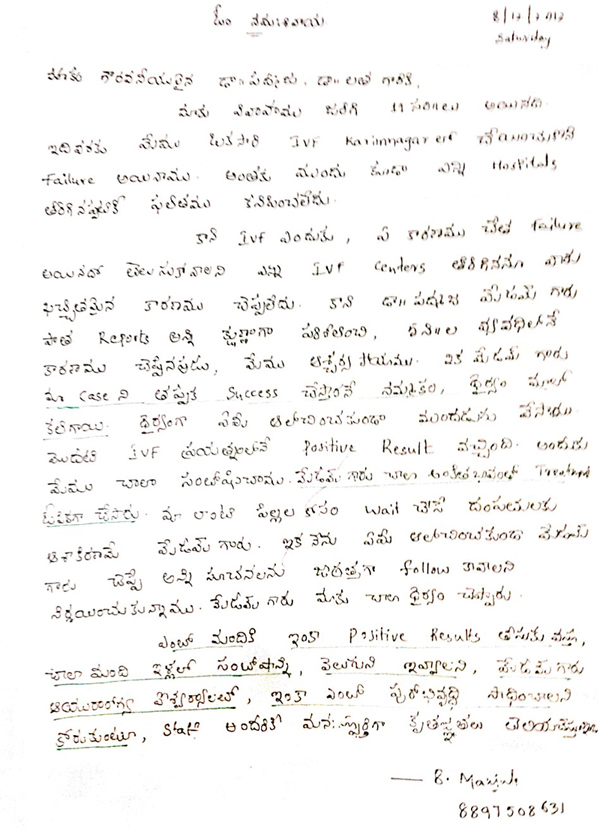 ఓం నమఃశివాయ
8/17/2017
Saturday
మాకు గౌరవనీయులైన డా॥ పద్మజ, డా॥ లత గారికి,
మాకు వివాహము జరిగి 11 సం॥లు అయినది.
ఇదివరకు మేము ఒకసారి IVF Karimnagar లో చేయించుకొని
Failure అయినాము. అంతకు ముందు కూడా ఎన్ని Hospitals
తిరిగినప్పటికి ఫలితము కనిపించలేదు.
కానీ IVF ఎందుకు, ఏ కారణము చేత Failure
అయినదో తెలుసుకోవాలని ఎన్ని IVF Centers తిరిగినను వారు
ఖచ్చితమైన కారణము చెప్పలేదు. కానీ డా॥ పద్మజ మేడమ్ గారు
పాత Reports అన్ని క్షుణ్ణంగా పరిశీలించి, వ్యవధిలోనే
కారణము చెప్పినపుడు, మేము ఆశ్చర్యపోయాము. ఇక మేడమ్ గారు
మా Case ని తప్పక Success చేస్తారనే నమ్మకం, ధైర్యం మాలో
కలిగాయి. ధైర్యంగా ఏమీ ఆలోచించకుండా ముందడుగు వేసాము.
మొదటి IVF ప్రయత్నంలోనే Positive Result వచ్చింది. అందుకు
మేము చాలా సంతోషించాము. మేడమ్ గారు చాలా అంకితభావంతో Treatment
ఓపికగా చేసారు. మా లాంటి పిల్లల కోసం wait చేసే దంపతులకు
ఆశాకిరణమే మేడమ్ గారు. ఇక నేను ఏమీ ఆలోచించకుండా మేడమ్
గారు చెప్పే అన్ని సూచనలను జాగ్రత్తగా follow కావాలని
నిర్ణయించుకున్నాము. మేడమ్ గారు మాకు చాలా ధైర్యం చెప్పారు.
ఎంతో మందికి ఇంకా Positive Results తీసుకు వస్తూ,
చాలా మంది ఇళ్లలో సంతోషాన్ని, వెలుగుని ఇవ్వాలని, మేడమ్ గారు
ఆయురారోగ్య ఐశ్వర్యాలతో, ఇంకా ఎంతో పురోభివృద్ధి సాధించాలని
కోరుకుంటూ, Staff అందరికి మనఃస్ఫూర్తిగా కృతజ్ఞతలు తెలియచేస్తున్నాను.
— B. Manjula
8897508631